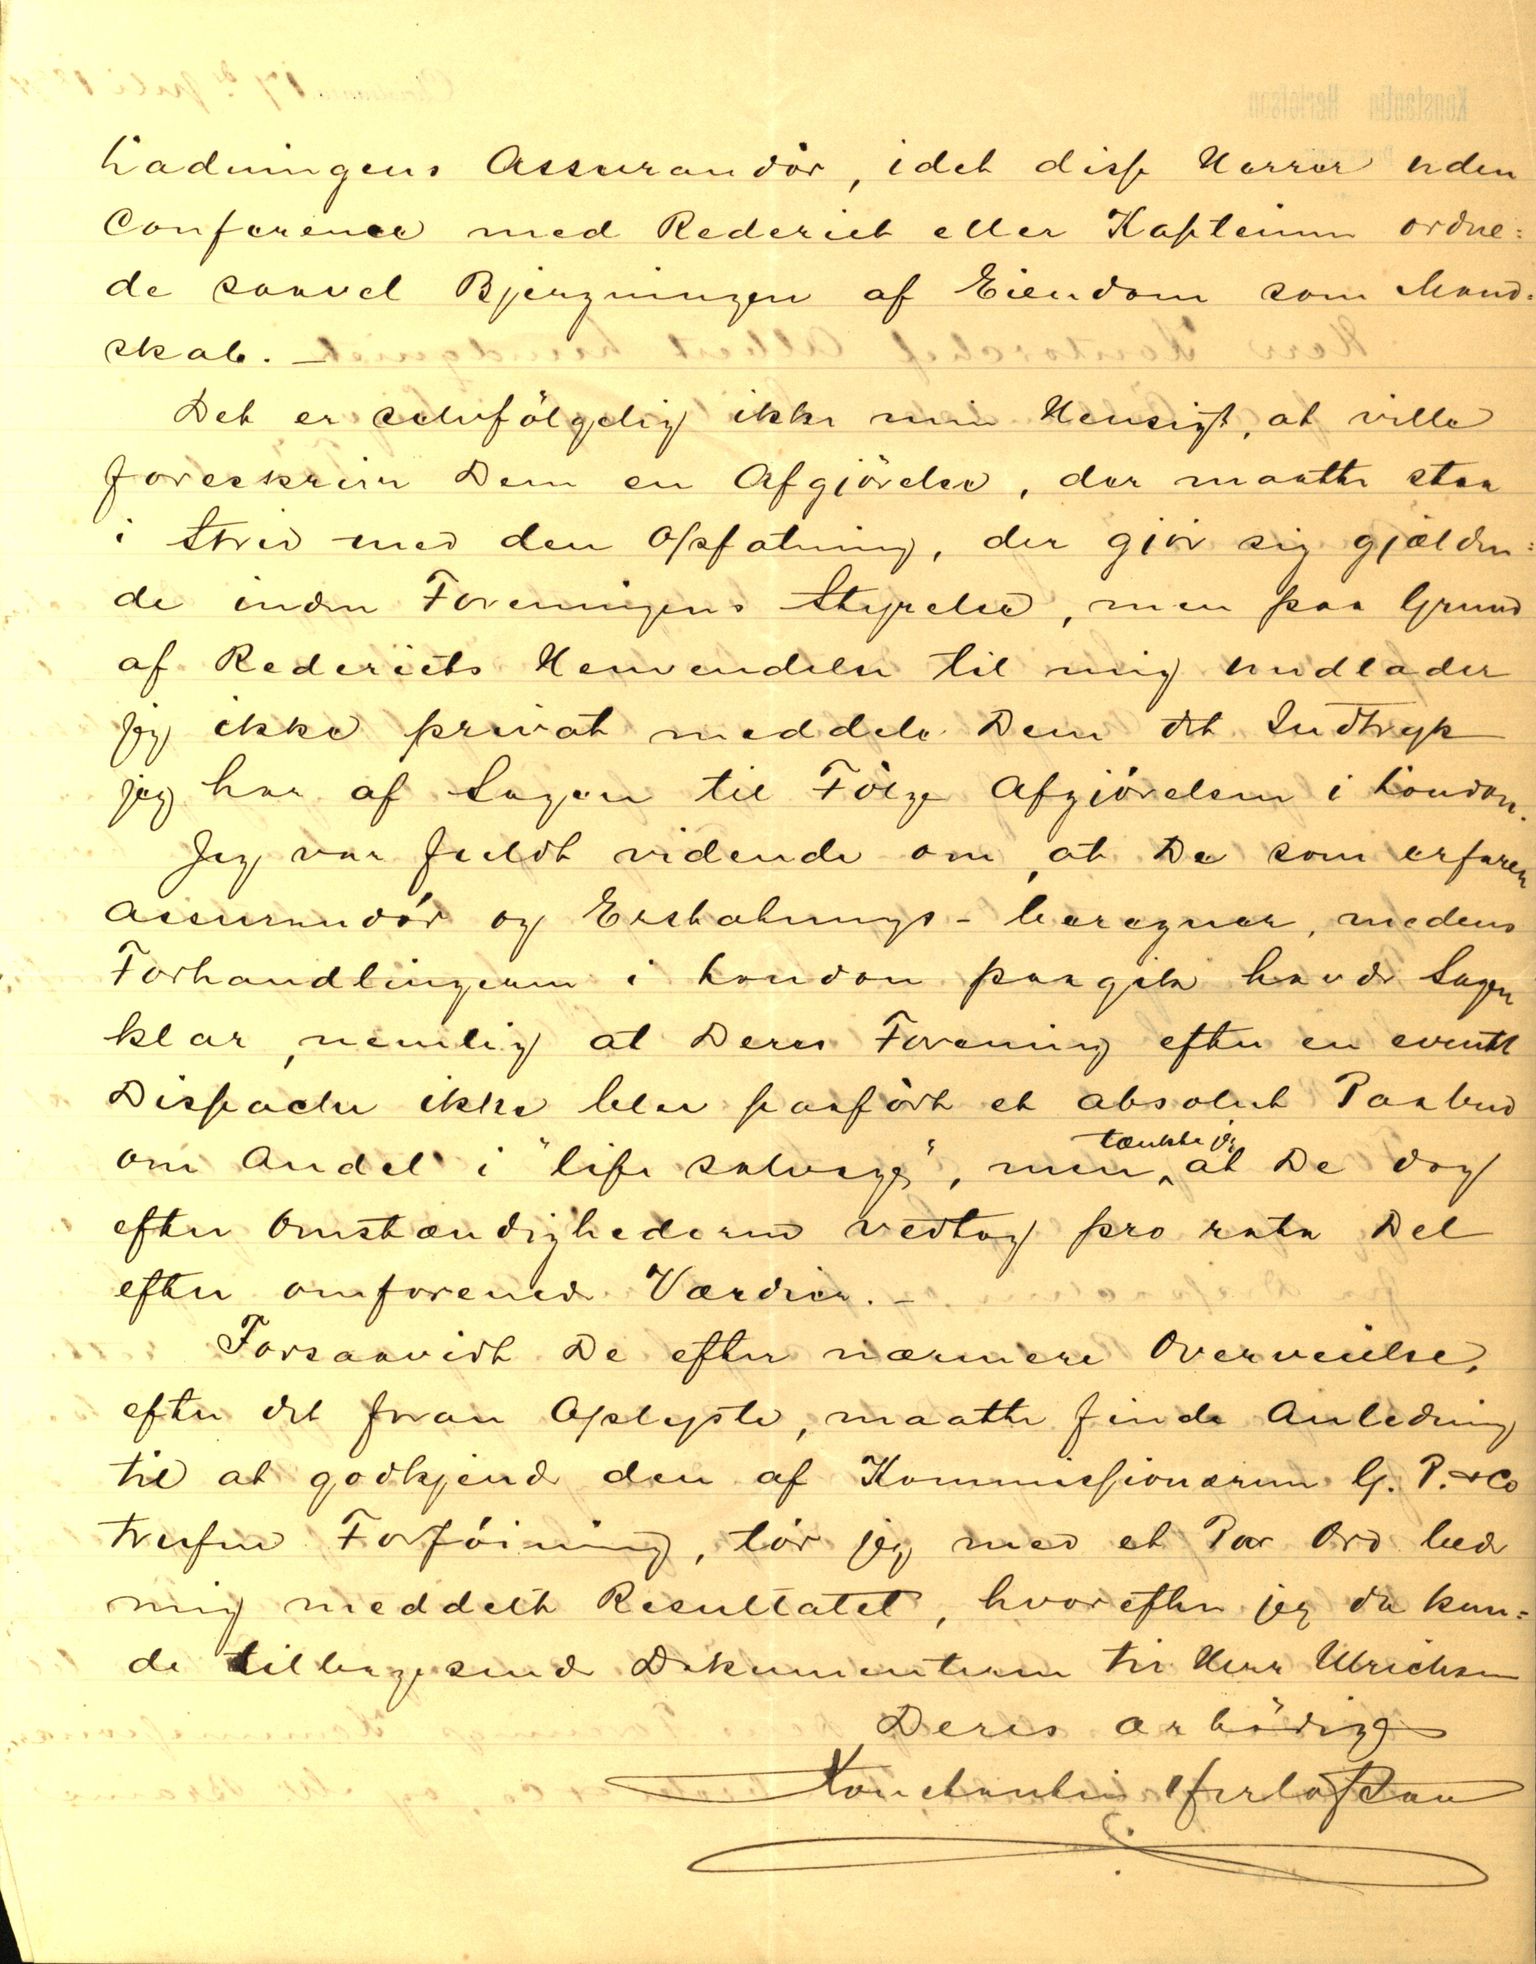 Ladningens Assurandör, idet disse Herrer uden
Conference med Rederiet eller Kapteinen ordne=
de saavel Bjergningen af Eiendom som Mand=
skab. —
Det er selvfölgelig ikke min Hensigt, at ville
foreskrive Dem en Afgjörelse, der maatte staa
i Strid med den Opfatning, der gjör sig gjælden=
de inden Foreningens Styrelse, men paa Grund
af Rederiets Henvendelse til mig undlader
jeg ikke privat meddele Dem det Indtryk
jeg har af Sagen til Fölge Afgjörelsen i London.
Jeg var fuldt vidende om, at De som erfaren
Assurandör og Erstatnings-beregner, medens
Forhandlingerne i London paagik havde Sagen
klar, nemlig at Deres Forening efter en eventl
Dispache ikke blev paafört et absolut Paabud
om Andel i "life salvage", men tænkte jeg, at De dog
efter Omstændighederne vedtog pro rata Del
efter omforenede Værdier. —
Forsaavidt De efter nærmere Overveielse,
efter det foran Oplyste, maatte finde Anledning
til at godkjende den af Kommissionærerne G. P. & Co
trufne Forföining, tör jeg med et Par Ord bede
mig meddelt Resultatet, hvorefter jeg da kun=
de tilbagesende Dokumenterne til Herr Ulrichsen
Deres ærbödige
Konstantin Herlofson